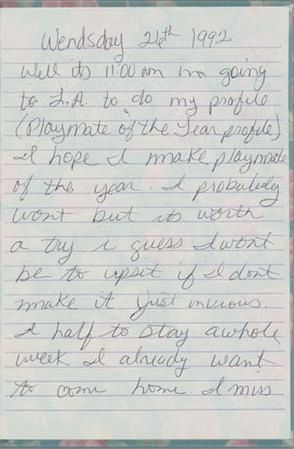 Wendsday 26th 1992
Well its 11:00 am im going
to L.A. to do my profile
(Playmate of the Year profile)
I hope I make playmate
of the year. I probabley
wont but its worth
a try i guess I wont
be to upsit if I dont
make it just invious.
I half to stay awhole
week I already want
to come home. I miss